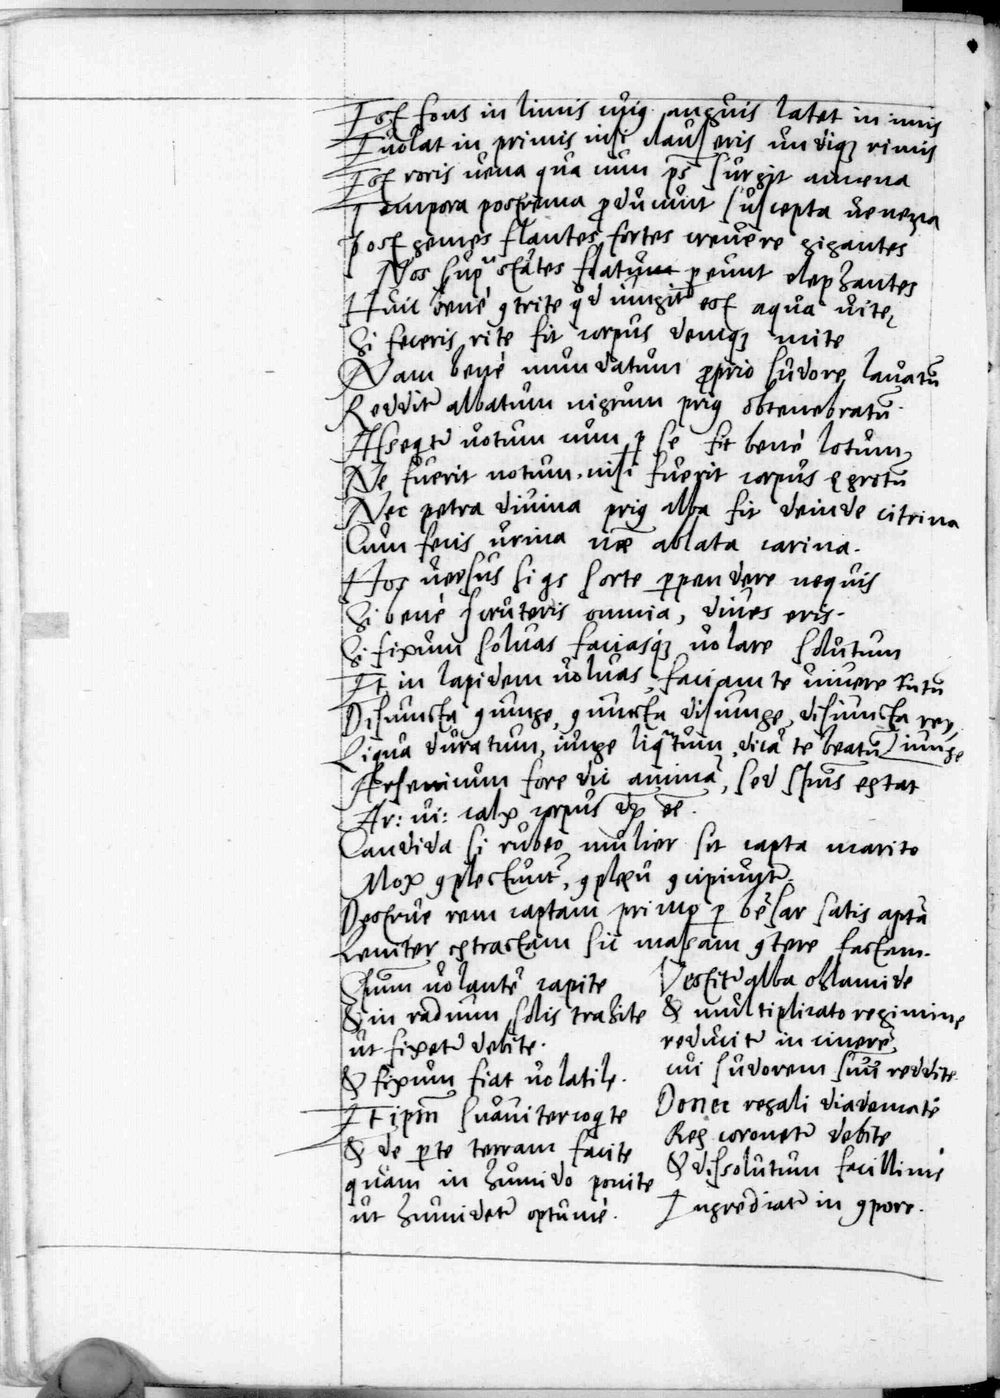 Est fons in limis cuiꝯ anguis latet in imis
Euolat in primis nisi clauseris undiqꝫ rimis
Est roris uena qua cum ps̄ surgit amena
Tempora postrema ꝓducunt suscepta uenena
post gentes flantes fortes creuere gigantes
Nos sup̄ stātes flatum ꝑeunt elephantes
Huic bene ꝯtrite qd iungit est aqua uite
Si feceris rite fit corpus denuqꝫ mite
Nam bene mundatum ꝓprio sudore lauatū
Redditr albatum nigrum priꝯ obtenebratū.
Asseqtr uotum cum ꝑ se fit bene lotum
Ne fuerit notum. nisi fuerit corpus egrotū
Nec petra diuina priꝯ alba fit deinde citrina
Cum fecis urina uāe ablata carina.
Hos uersus si qs forte ꝑpendere nequis
Si bene scruteris omnia, diues eris.
Si fixum soluas faciasqꝫ uolare solutum
Et in lapidem uoluas, faciam te uiuere tutū
Disiuncta ꝯiunge, ꝯiuncta disiunge, disiuncta rex
Liqua duratum, iunge liq̄tum, dicā te beatū iunge
Arsenicum fore dic animā, sed spūs extat
Ar: ui: calx corpus dr̄ ee.
Candida si rubeo mulier sit capta marito
Mox ꝯplectuntr, ꝯplexu ꝯcipiuntr.
Destrue rem captam primo ꝑ besar satis aptā
Leniter extractam sic massam ꝯtere factam.
Spūm uolantē capite
& in radium solis trahite
ut fixetr debite.
& fixum fiat uolatile.
Et ipm̄ suauiter coqte
& de ꝑte terram facite
quam in humido ponite
ut humidetr optime.
Vestitr alba chlamide
& multiplicato regimine
reducitr in cinere
cui sudorem suū reddite.
Donec regali diademate
Rex coronetr debite
& dissolutum facillime
Ingrediatr in ꝯpore.